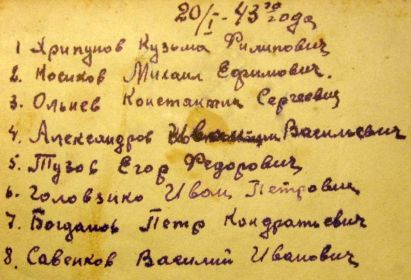 20/I - 43 го года
1 Хрипунов Кузьма Филипович
2. Носиков Михаил Ефимович.
3. Ольнев Константин Сергеевич
4. Александров Иван Васильевич
5. Тузов Егор Федорович
6. Головзико Иван Петрович
7. Богданов Петр Кондратьевич
8. Савенков Василий Иванович